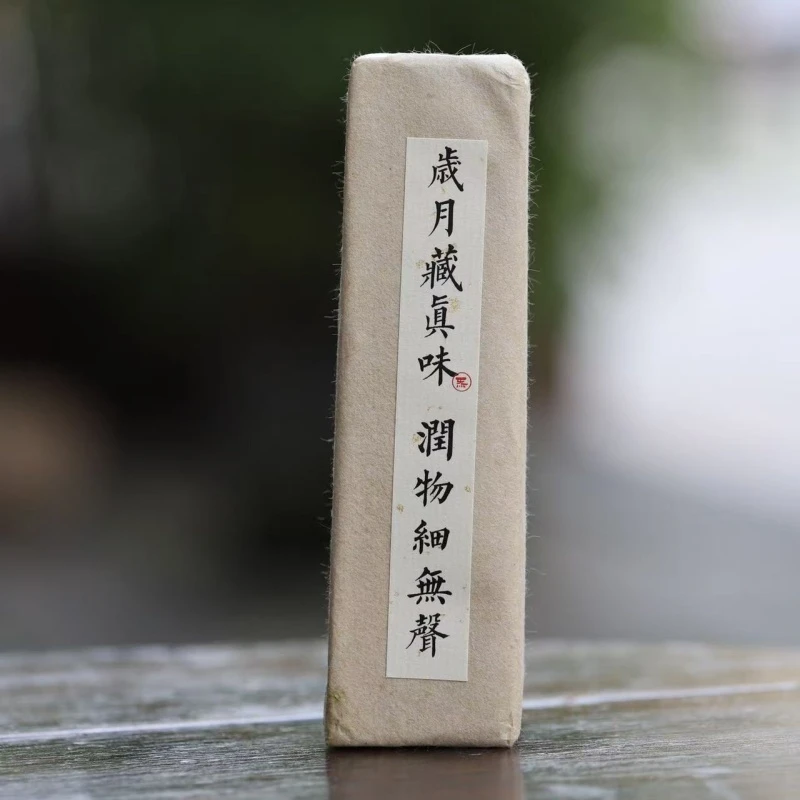 歲月藏眞味 潤物細無聲